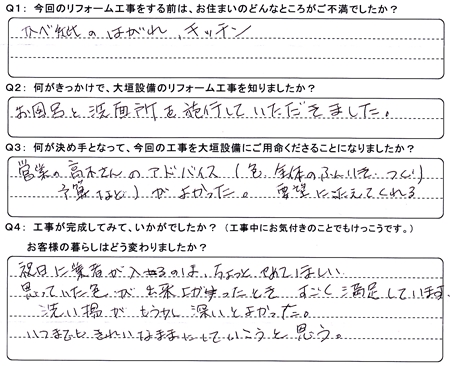 Q1: 今回のリフォーム工事をする前は、お住まいのどんなところがご不満でしたか?
かべ紙のはがれ、キッチン
Q2: 何がきっかけで、大垣設備のリフォーム工事を知りましたか?
お風呂と洗面所を施行していただきました。
Q3: 何が決め手となって、今回の工事を大垣設備にご用命くださることになりましたか?
営業の高木さんのアドバイス(色、全体のふんいき、つくり
予算など)がよかった。 要望に応えてくれる
Q4: 工事が完成してみて、いかがでしたか? (工事中にお気付きのことでもけっこうです。)
お客様の暮らしはどう変わりましたか?
祝日に業者が入るのは、ちょっとやめてほしい
思っていた色が出来上がったときすごく満足しています。
洗い場がもう少し深いとよかった。
いつまでもきれいなままにしていこうと思う。